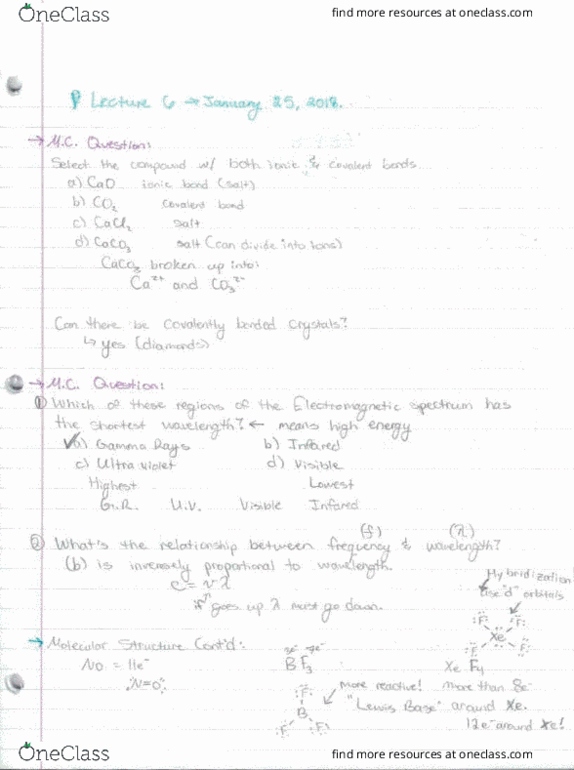 OneClass
find more resources at oneclass.com
Lecture 6 → January 25, 2018.
→ M.C. Question:
Select the compound w/ both ionic & covalent bonds
a) CaO ionic bond (salt)
b) CO₂ covalent bond
c) CaCl₂ salt
d) CaCO₃ salt (can divide into ions)
CaCO₃ broken up into:
Ca²⁺ and CO₃²⁻
Can there be covalently bonded crystals?
↳ yes (diamonds)
→ M.C. Question:
① Which of these regions of the Electromagnetic spectrum has
the shortest wavelength? ← means high energy
✓a) Gamma Rays b) Infared
c) Ultra violet d) Visible
Highest Lowest
G.R. U.V. Visible Infared
(f) (λ)
② What's the relationship between frequency & wavelength?
(b) is inversely proportional to wavelength.
c = νλ
if "ν" goes up λ must go down.
Hybridization
use "d" orbitals
→ Molecular Structure Cont'd:
NO = 11e⁻
:N=O:
3e⁻ 7e⁻
BF₃
F
B
F F
More reactive!
"Lewis Base"
F F
Xe
F F
XeF₄
more than 8e⁻
around Xe.
12e⁻ around Xe!
OneClass
find more resources at oneclass.com